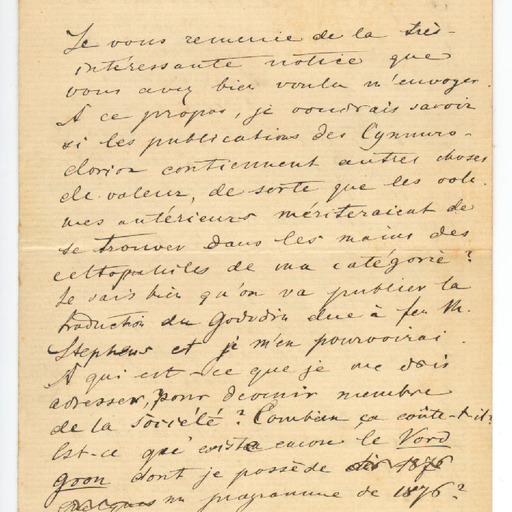 Je vous remercie de la très-
intéressante notice que
vous avez bien voulu m'envoyer.
A ce propos, je voudrais savoir
si les publications des Cymmro-
dorion contiennent autres choses
de valeur, de sorte que les volu-
mes antérieurs mériteraient de
se trouver dans les mains des
celtophiles de ma catégorie?
Je sais bien qu'on va publier la
traduction du Gododin due à feu M.
Stephens et je m'en pourvoirai.
A qui est-ce que je me dois
adresser, pour devenir membre
de la société? Combien ça coûte-t-il?
Est-ce qu'existe encore le Vord
goon dont je possède
un programme de 1876?